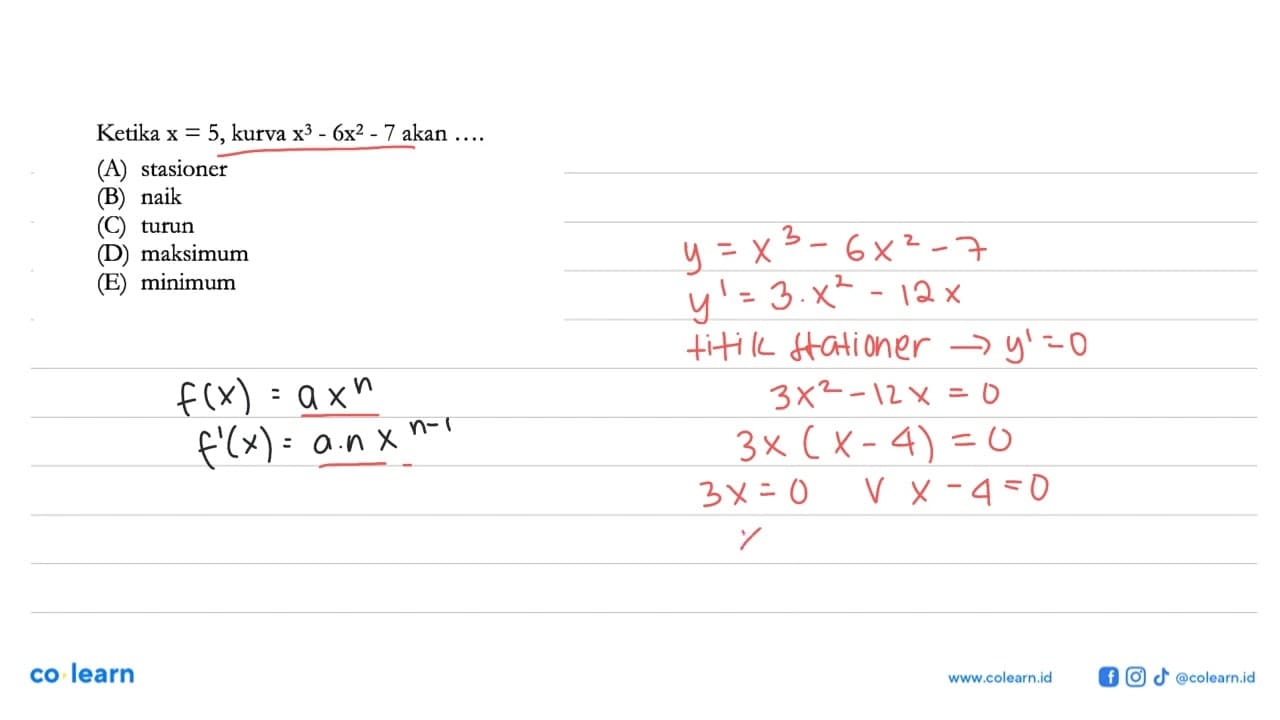 Ketika x = 5, kurva x³ - 6x² - 7 akan ....
(A) stasioner
(B) naik
(C) turun
(D) maksimum
(E) minimum
f(x) = axⁿ
f'(x) = a.n xⁿ⁻¹
y = x³ - 6x² - 7
y' = 3.x² - 12x
titik stationer → y' = 0
3x² - 12x = 0
3x (x - 4) = 0
3x = 0 V x - 4 = 0
co learn
www.colearn.id
@colearn.id